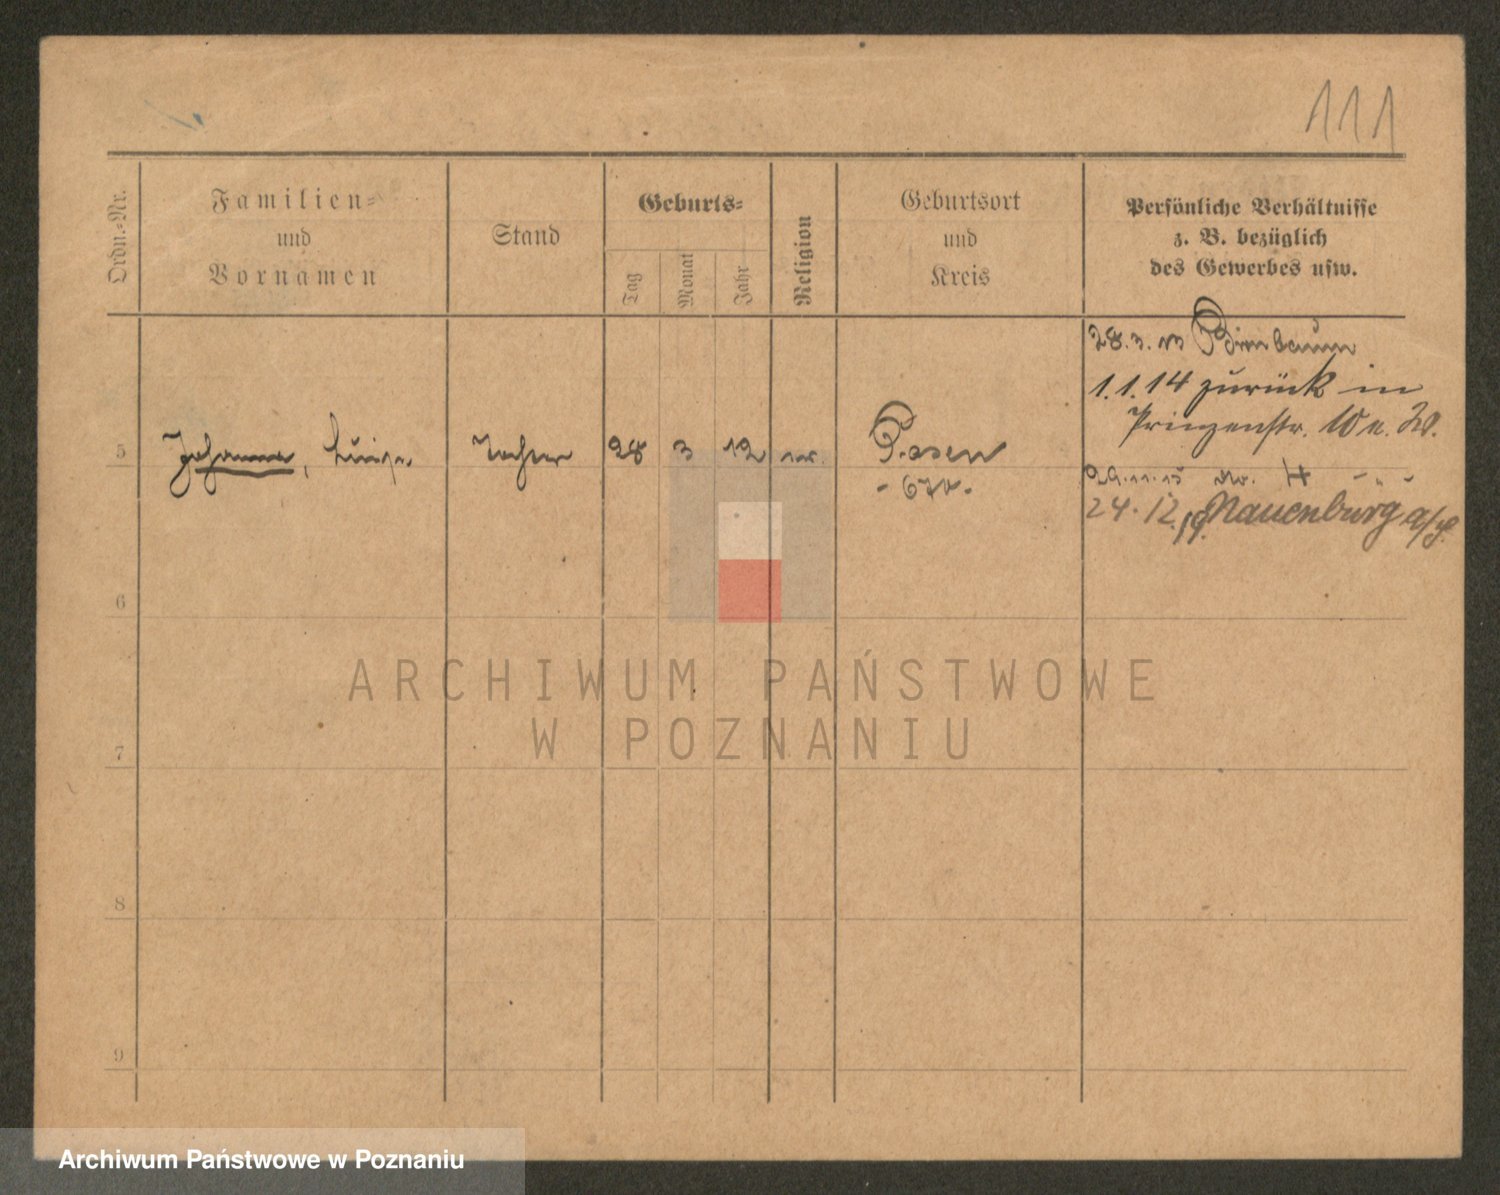 111
Ordn.-Nr.
Familien-
und
Vornamen
Stand
Geburts-
Tag
Monat
Jahr
Religion
Geburtsort
und
Kreis
Persönliche Verhältnisse
z. B. bezüglich
des Gewerbes usw.
28.3.13 Birnbaum
1.1.14 zurück in
Prinzenstr. 10
5
Johanna, Luise
Tochter
28
3
12
Posen
29.11.15
24.12.19. Nauenburg
6
7
8
9
ARCHIWUM PAŃSTWOWE
W POZNANIU
Archiwum Państwowe w Poznaniu